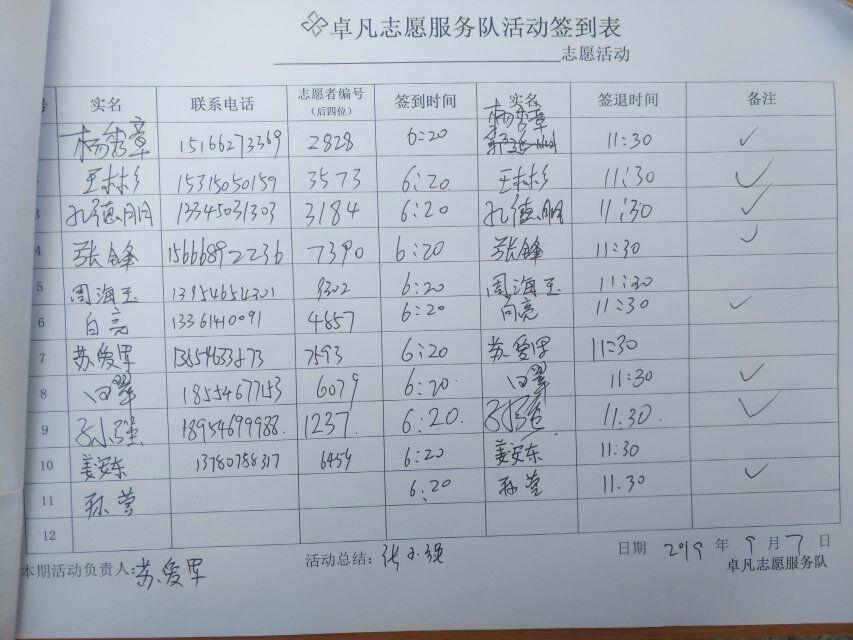 卓凡志愿服务队活动签到表
志愿活动
号 实名 联系电话 志愿者编号(后四位) 签到时间 实名 签退时间 备注
杨秀章 15166273369 2828 6:20 杨秀章 11:30 ✓
2 王林杉 15315050159 3573 6:20. 王林杉 11:30 ✓
3 孔德明 13345031303 3184 6:20 孔德明 11:30 ✓
4 张锋 15666892236 7390 6:20 张锋 11:30 ✓
5 周海玉 13954654301 9302 6:20 周海玉 11:30
6 白亮 13361410091 4857 6:20 白亮 11:30 ✓
7 苏爱军 7593 6:20 苏爱军 11:30
8 18554677153 6079 6:20. 11:30 ✓
9 18954699988. 1237. 6:20. 11.30. ✓
10 姜安东 13780758317 6454 6:20 姜安东 11:30
11 孙莹 6:20 孙莹 11.30 ✓
12
本期活动负责人:苏爱军 活动总结:张小强 日期 2019 年 9 月 7 日
卓凡志愿服务队